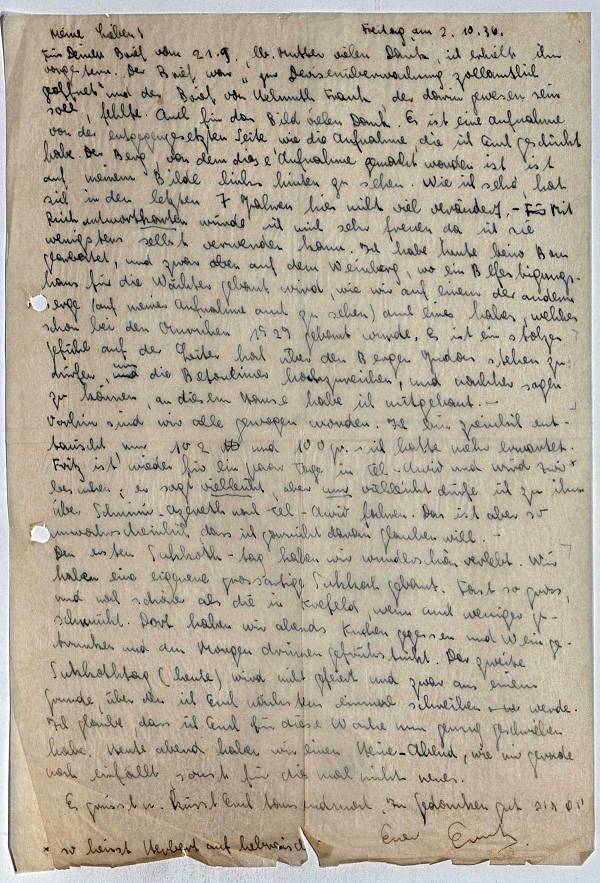 Meine Lieben! Freitag am 2.10.36.
Für Deinen Brief vom 21.9., lb. Mutter vielen Dank, ich erhielt ihn
vorgestern. Der Brief war "zur Devisenüberwachung zollamtlich
geöffnet" und der Brief von Helmuth Frank, der darin gewesen sein
soll, fehlte. Auch für das Bild vielen Dank. Es ist eine Aufnahme
von der entgegengesetzten Seite wie die Aufnahme, die ich Euch geschickt
habe. Der Berg, von dem diese Aufnahme gemacht worden ist, ist
auf meinem Bilde links hinten zu sehen. Wie ich sehe, hat
sich in den letzten 7 Jahren hier nicht viel verändert. - Mit
Rückantwortkarten würde ich mich sehr freuen da ich sie
wenigstens selbst verwenden kann. Ich habe heute beim Bau
gearbeitet, und zwar oben auf dem Weinberg, wo ein Befestigungs-
haus für die Wächter gebaut wird, wie wir auf einem der anderen
Berge (auf meiner Aufnahme auch zu sehen) auch eines haben, welches
schon bei den Unruhen 1929 gebaut wurde. Es ist ein stolzes
Gefühl auf der Leiter hoch über den Bergen Judäas stehen zu
dürfen, und die Betoneimer hochzureichen, und nachher sagen
zu können, an diesem Hause habe ich mitgebaut. -
Vorhin sind wir alle gewogen worden. Ich bin ziemlich ent-
täuscht nur 102 und 100 gr. ich hatte mehr erwartet.
Fritz ist wieder für ein paar Tage in Tel-Awiw und wird
besuchen; er sagt vielleicht, aber nur vielleicht dürfe ich zu ihm
über Schmini-Azereth nach Tel-Awiw fahren. Das ist aber so
unwahrscheinlich dass ich garnicht daran glauben will. -
Den ersten Sukkoth-tag haben wir wunderschön verlebt. Wir
haben eine eigene grossartige Sukkah gebaut. Fast so gross,
und noch schöner als die in Krefeld, wenn auch weniger ge-
schmückt. Dort haben wir abends Kuchen gegessen und Wein ge-
trunken und am Morgen drinnen gefrühstückt. Der zweite
Sukkothtag (heute) wird nicht gefeiert und zwar aus einem
Grunde über den ich Euch nächstens einmal schreiben werde.
Ich glaube, dass ich Euch für diese Woche nun genug geschrieben
habe. Heute abend haben wir einen Heine-Abend, wie mir gerade
noch einfällt sonst für dies mal nichts neues.
Es grüsst u. küsst Euch tausendmal. In Gedanken gut
Euer Ernst
* so heisst Herbert auf hebräisch